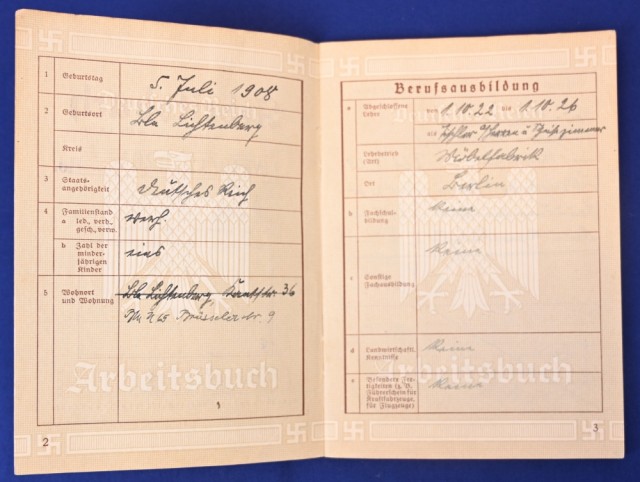 1 Geburtstag
5. Juli 1908
2 Geburtsort
Bln Lichtenberg
Kreis
3 Staats-
angehörigkeit
Deutsches Reich
4 Familienstand
a led., verh.,
gesch., verw.
verh.
b Zahl der
minder-
jährigen
Kinder
eins
5 Wohnort
und Wohnung
Bln Lichtenberg, Kantstr 36
65 Brüsseler Str. 9
Arbeitsbuch
2
Berufsausbildung
a Abgeschlossene
Lehre
von 1.10.22 bis 1.10.26
als
Lehrbetrieb
(Art)
Möbelfabrik
Ort
Berlin
b Fachschul-
bildung
keine
c Sonstige
Fachausbildung
keine
d Landwirtschaftl.
Kenntnisse
keine
e Besondere Fer-
tigkeiten (z. B.
Führerschein für
Kraftfahrzeuge,
für Flugzeuge)
keine
Arbeitsbuch
3